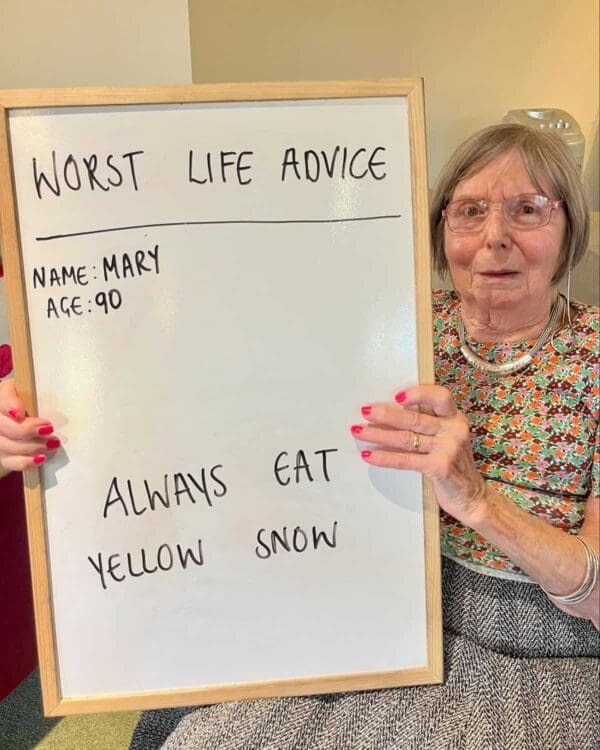 WORST LIFE ADVICE
NAME: MARY
AGE: 90
ALWAYS EAT
YELLOW SNOW